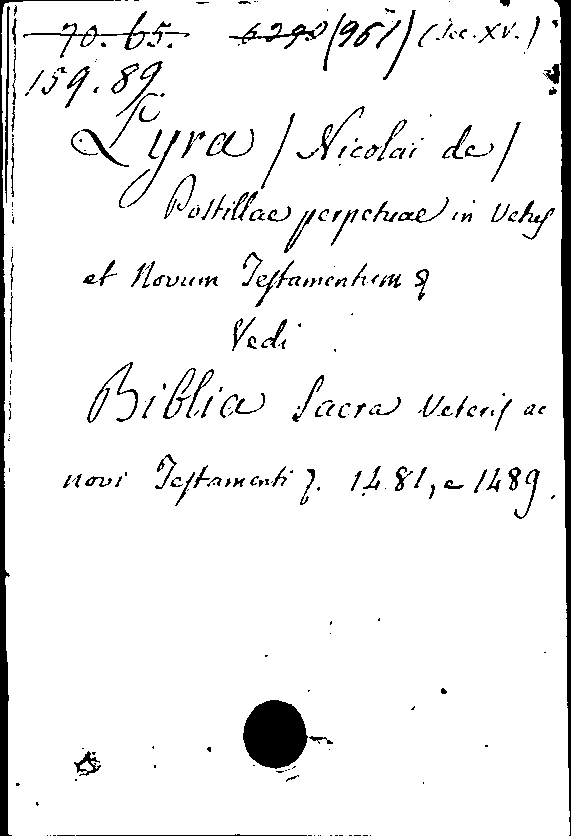 70. 65. 6298 (961) (Sec. XV.)
159. 89.
Lyra / Nicolai de /
Postillae perpetuae in Vetus
et Novum Testamentum
Vedi
Biblia Sacra Veteris ac
novi Testamenti 1481, e 1489.